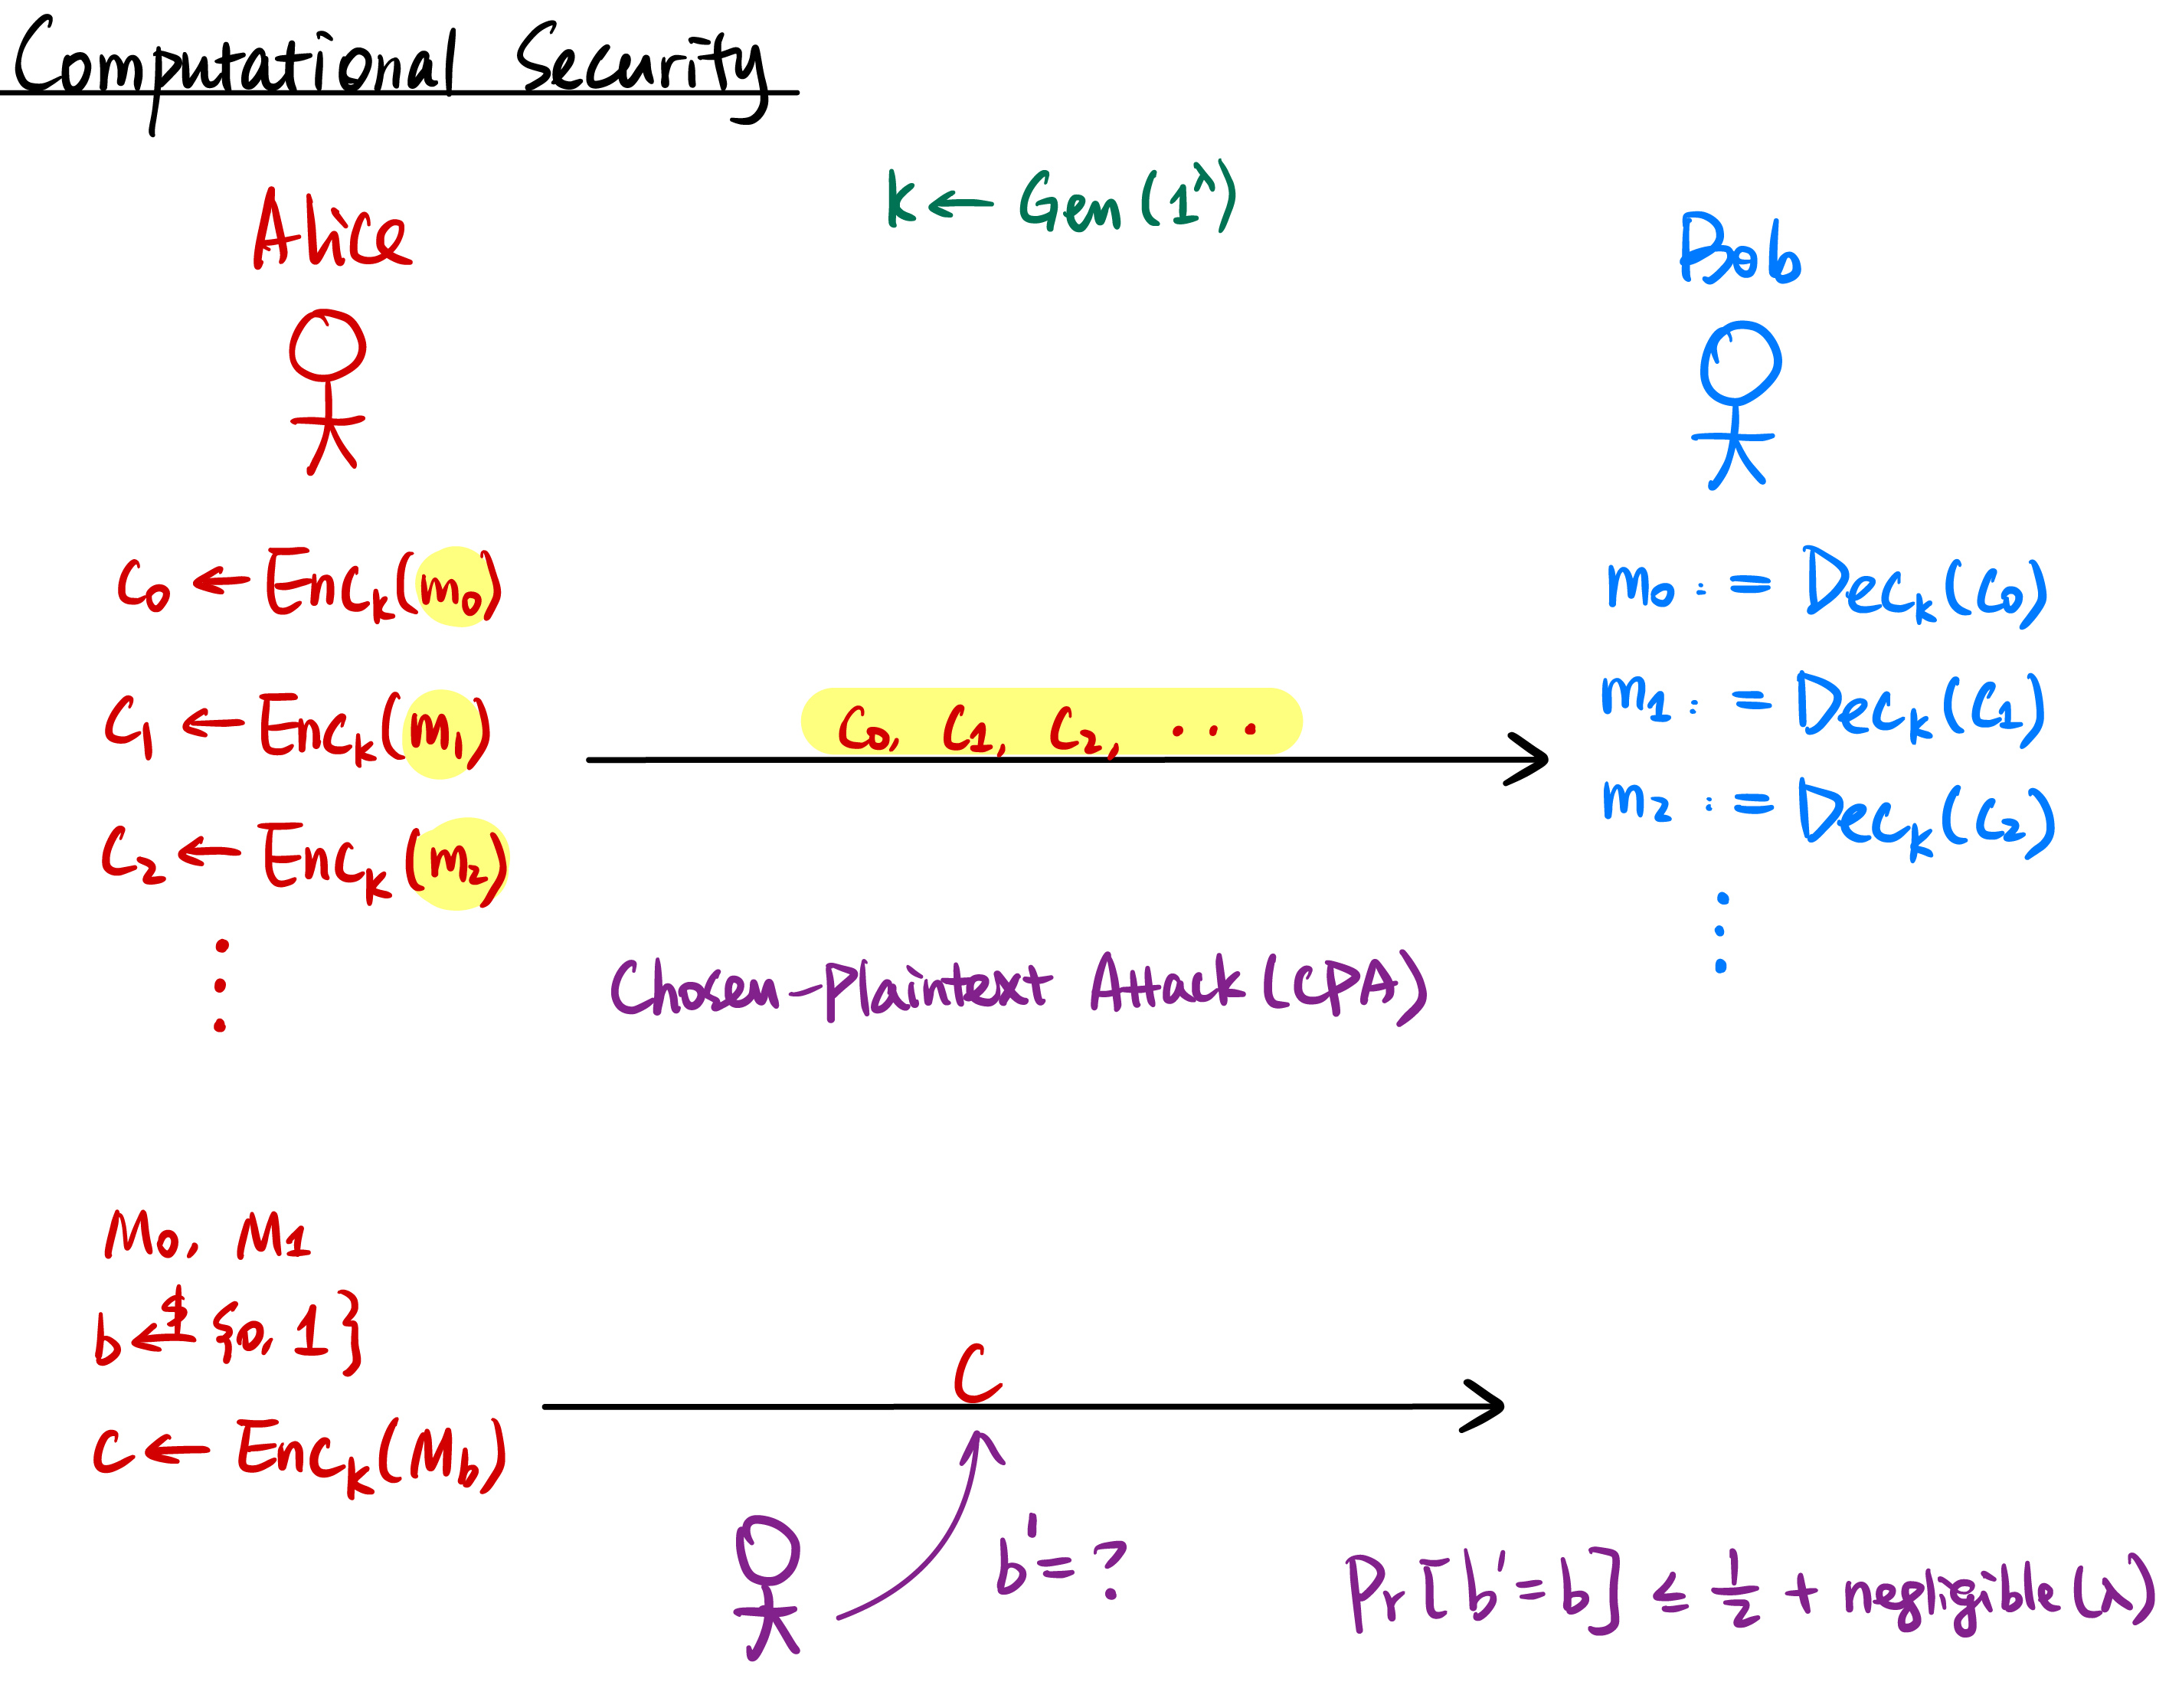 Computational Security
k ← Gen(1^λ)
Alice
Bob
c₀ ← Enc_k(m₀)
c₁ ← Enc_k(m₁)
c₂ ← Enc_k(m₂)
⋮
c₀, c₁, c₂, ...
m₀ := Dec_k(c₀)
m₁ := Dec_k(c₁)
m₂ := Dec_k(c₂)
⋮
Chosen-Plaintext Attack (CPA)
M₀, M₁
b ←$ {0, 1}
c ← Enc_k(M_b)
C
b' = ?
Pr[b' = b] ≤ 1/2 + negligible(λ)